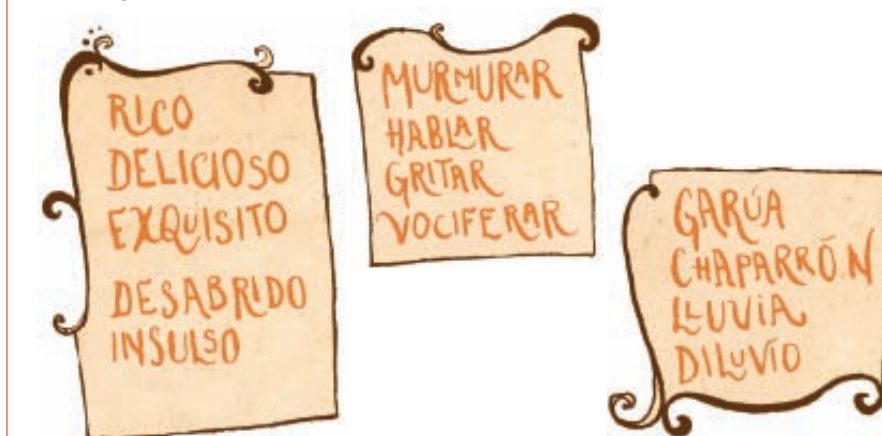 RICO
DELICIOSO
EXQUISITO
DESABRIDO
INSULSO
MURMURAR
HABLAR
GRITAR
VOCIFERAR
GARÚA
CHAPARRÓN
LLUVIA
DILUVIO